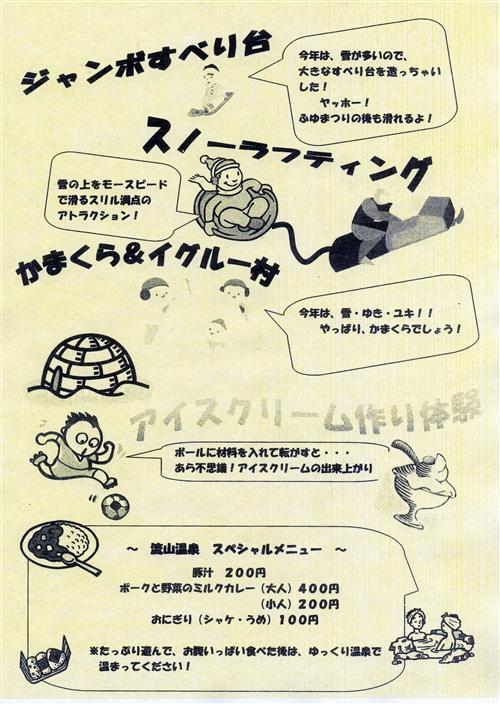 ジャンボすべり台
今年は、雪が多いので、
大きなすべり台を造っちゃい
した！
ヤッホー！
ふゆまつりの後も滑れるよ！
スノーラフティング
雪の上をモースピード
で滑るスリル満点の
アトラクション！
かまくら＆イグルー村
今年は、雪・ゆき・ユキ！！
やっぱり、かまくらでしょう！
アイスクリーム作り体験
ボールに材料を入れて転がすと・・・
あら不思議！アイスクリームの出来上がり
～ 流山温泉 スペシャルメニュー ～
豚汁 200円
ポークと野菜のミルクカレー（大人）400円
（小人）200円
おにぎり（シャケ・うめ）100円
※たっぷり遊んで、お腹いっぱい食べた後は、ゆっくり温泉で
温まってください！